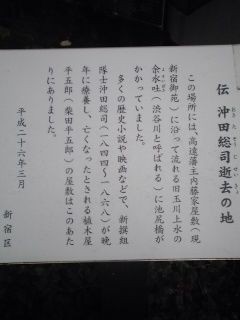 伝 沖田総司逝去の地
おきたそうじせいきょ
この場所には、高遠藩主内藤家屋敷(現
新宿御苑)に沿って流れる旧玉川上水の
余水吐(渋谷川と呼ばれる)に池尻橋が
かかっていました。
多くの歴史小説や映画などで、新撰組
隊士沖田総司(一八四四~一八六八)が晩
年に療養し、亡くなったとされる植木屋
平五郎(柴田平五郎)の屋敷はこのあた
りにありました。
平成二十六年三月
新宿区